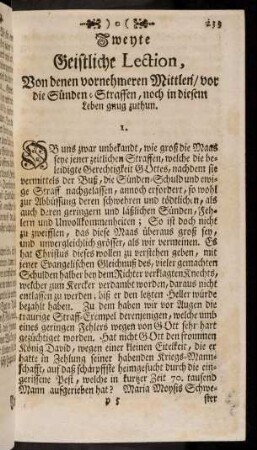 )o(
239
Zweyte
Geistliche Lection,
Von denen vornehmeren Mittlen/ vor
die Sünden-Straffen, noch in diesem
Leben gnug zuthun.
1.
OB uns zwar unbekandt, wie groß die Maas
seye jener zeitlichen Straffen, welche die be-
leidigte Gerechtigkeit GOttes, nachdem sie
vermittels der Buß, die Sünden-Schuld und ewi-
ge Straff nachgelassen, annoch erfordert, so wohl
zur Abbüssung deren schwehren und tödtlichen, als
auch deren geringern und läßlichen Sünden, Feh-
lern und Unvollkommenheiten; So ist doch nicht
zu zweifflen, das diese Maas überaus groß sey,
und unvergleichlich grösser, als wir vermeinen. Es
hat Christus dieses wollen zu verstehen geben, mit
jener Evangelischen Gleichnuß des, vieler gemachten
Schulden halber bey dem Richter verklagten Knechts,
welcher zum Kercker verdambt worden, daraus nicht
entlassen zu werden, biß er den letzten Heller würde
bezahlt haben. Zu dem haben wir vor Augen die
traurige Straff-Exempel derenjenigen, welche umb
eines geringen Fehlers wegen von GOtt sehr hart
gezüchtiget worden. Hat nicht GOtt den frommen
König David, wegen einer kleinen Eitelkeit, die er
hatte in Zehlung seiner habenden Kriegs-Mann-
schafft, auf daß schärpffste heimgesucht durch die ein-
gerissene Pest, welche in kurtzer Zeit 70. tausend
Mann aufgerieben hat? Maria Moysis Schwe-
P 5
ster